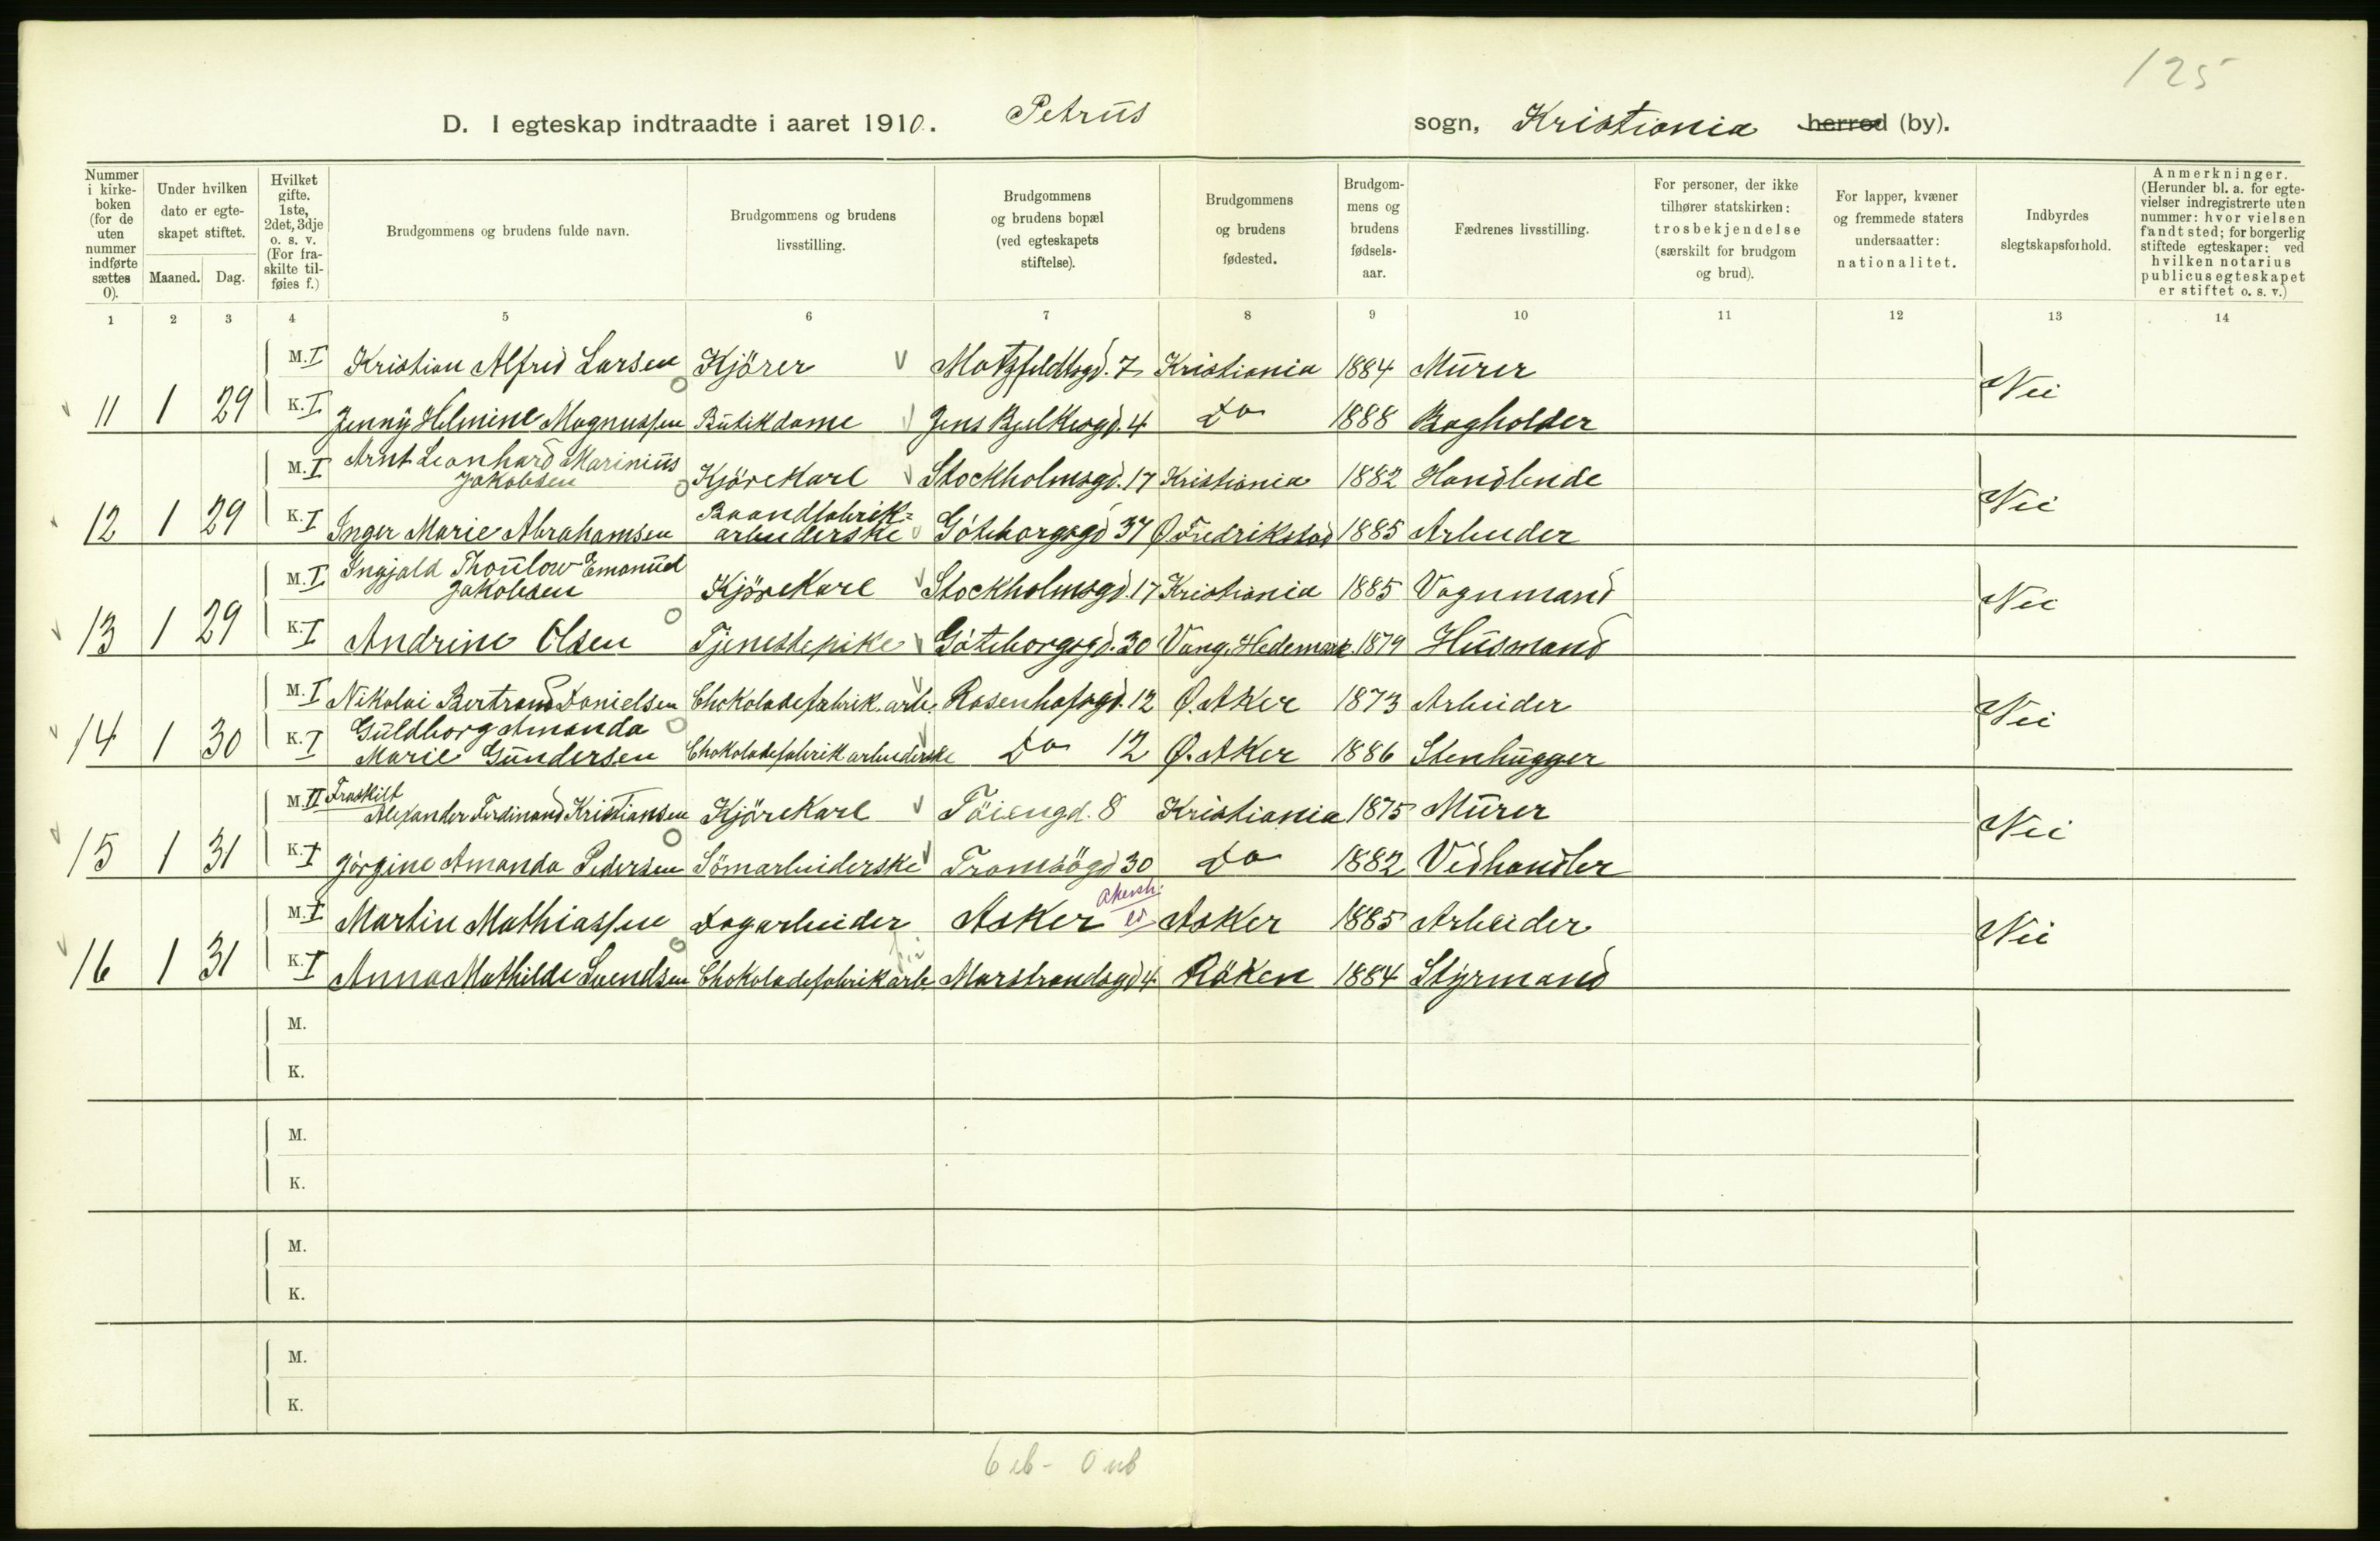 125
D. I egteskap indtraadte i aaret 1910. Petrus sogn, Kristiania herred (by).
Nummer i kirke-boken (for de uten nummer indførte sættes 0).
Under hvilken dato er egte-skapet stiftet.
Maaned. Dag.
Hvilket gifte. 1ste, 2det, 3dje o. s. v. (For fra-skilte til-føies f.)
Brudgommens og brudens fulde navn.
Brudgommens og brudens livsstilling.
Brudgommens og brudens bopæl (ved egteskapets stiftelse).
Brudgommens og brudens fødested.
Brudgom-mens og brudens fødsels-aar.
Fædrenes livsstilling.
For personer, der ikke tilhører statskirken: trosbekjendelse (særskilt for brudgom og brud).
For lapper, kvæner og fremmede staters undersaatter: nationalitet.
Indbyrdes slegtskapsforhold.
Anmerkninger. (Herunder bl. a. for egte-vielser indregistrerte uten nummer: hvor vielsen fandt sted; for borgerlig stiftede egteskaper: ved hvilken notarius publicus egteskapet er stiftet o. s. v.)
1 2 3 4 5 6 7 8 9 10 11 12 13 14
M. I Kristian Alfred Larsen Kjörer Motzfeldtsgd. 7 Kristiania 1884 Murer
11 1 29 K. I Jenny Helmine Magnussen Butikdame Jens Bjelkesgd. 4 Do 1888 Bogholder Nei
M. I Arnt Leonhard Marinius Jakobsen Kjörekarl Stockholmsgd. 17 Kristiania 1882 Handlende
12 1 29 K. I Inger Marie Abrahamsen Baandfabrik=arbeiderske Göteborgsgd 37 Ø Fredrikstad 1885 Arbeider Nei
M. I Ingjald Thoulow Emanuel Jakobsen Kjörekarl Stockholmsgd. 17 Kristiania 1885 Vognmand
13 1 29 K. I Andrine Olsen Tjenestepike Göteborgsgd. 30 Vang. Hedemark. 1879 Husmand Nei
M. I Nikolai Bertrand Danielsen Chokoladefabrik.arb. Rosenhofsgd. 12 Ø. Aker 1873 Arbeider
14 1 30 K. I Guldborg Amanda Marie Gundersen Chokoladefabrik arbeiderske Do 12 Ø. Aker 1886 Stenhugger Nei
M. II Fraskilt Alexander Ferdinand Kristiansen Kjörekarl Töiengd. 8 Kristiania 1875 Murer
15 1 31 K. I Jörgine Amanda Pedersen Sömarbeiderske Tromsögd 30 Do 1882 Vedhandler Nei
M. I Martin Mathiassen Dagarbeider Asker Akersh. Asker 1885 Arbeider
16 1 31 K. I Anna Mathilde Svendsen Chokoladefabrikarb. Marstrandsgd 4 Röken 1884 Styrmand Nei
M.
K.
M.
K.
M.
K.
M.
K.
6 eb - 0 ub